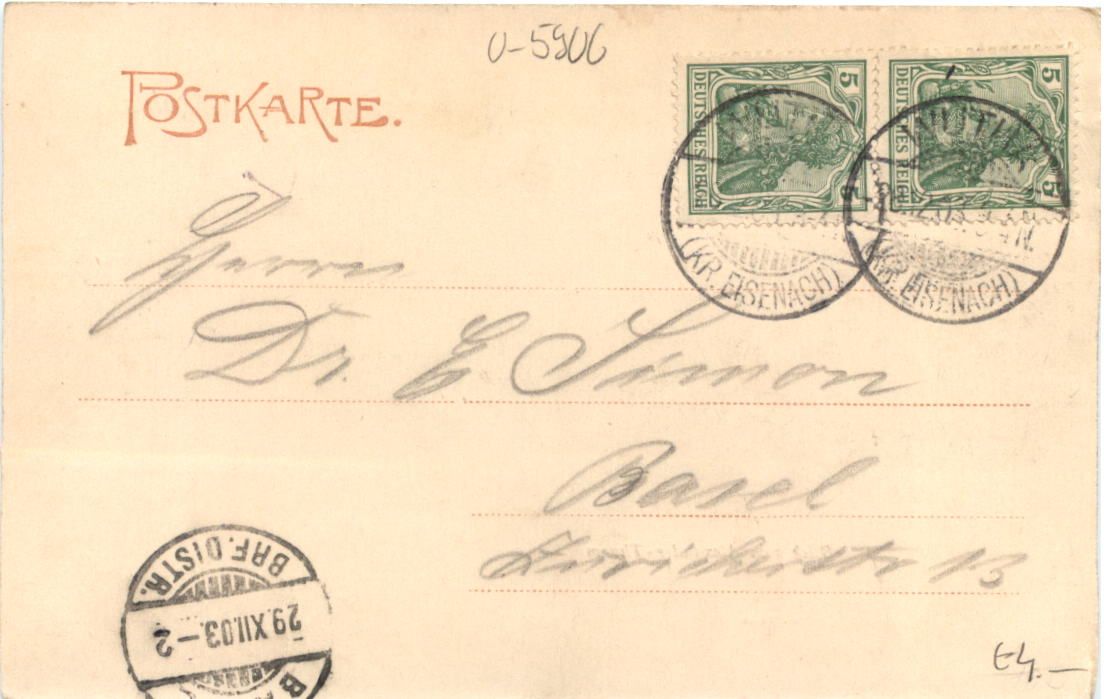 U-5906
POSTKARTE.
5 5
DEUTSCHES REICH DEUTSCHES REICH
5 5
(KR. EISENACH) (KR. EISENACH)
Herrn
Dr. E Simon
Basel
Züricherstr 13
BRF. DISTR.
29.XII.03.–2
E4.—